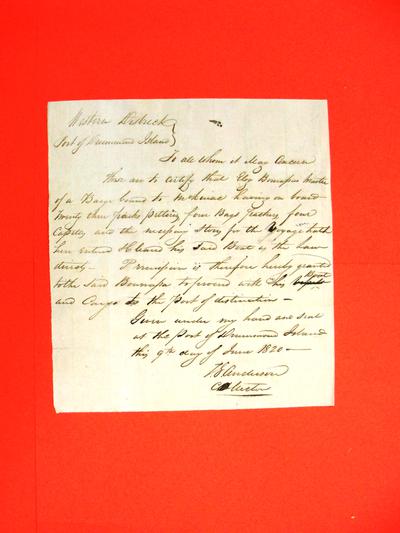 Western Districk
Port of Drummond Island
To all whom it May Concern
These are to certify that Eloy Bourassa Master
of a Barge bound to McKenac having on board
twenty three packs peltery four Bags four
and the necessary Stors for the Voyage hath
here entred & Cleard his Said Boat as the Law
directs - Permission is therefore hereby granted
to the said Bourassa to proceed with his Boat
and Cargo to the Port of destination -
Given under my hand and seal
at the Port of Drummond Island
this 9th day of June 1820 -
Anderson
Collector